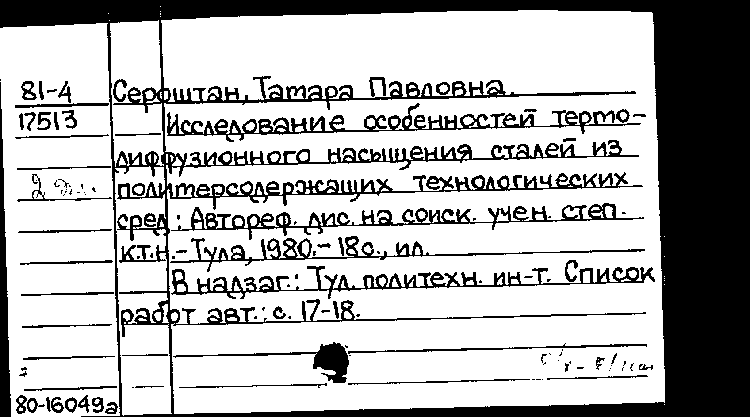 81-4 Сероштан, Тамара Павловна.
17513 Исследование особенностей термо-
диффузионного насыщения сталей из
политерсодержащих технологических
сред: Автореф. дис. на соиск. учен. степ.
к.т.н. - Тула, 1980. - 18с., ил.
В надзаг.: Тул. политехн. ин-т. Список
работ авт.: с. 17-18.
80-16049а